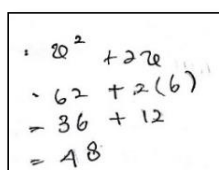 : x² + 2x
- 62 + 2(6)
= 36 + 12
= 48